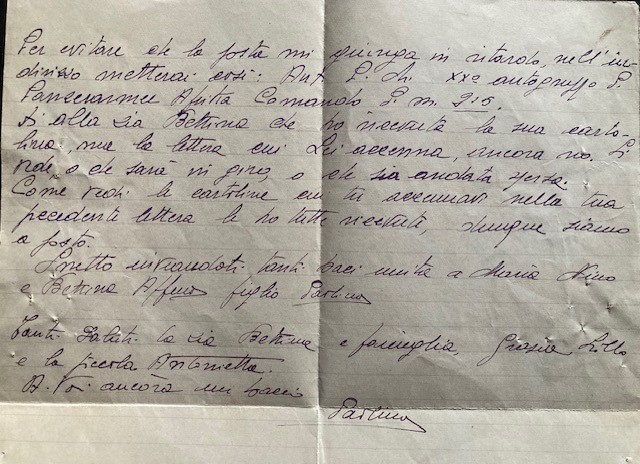 Per evitare che la posta mi giunga in ritardo, nell'in-
dirizzo metterai così: Aut. L. Chi XXº autogruppo P.
Comando P. M. 210.
Di alla zia Bettina che ho ricevuta la sua carto-
lina, ma la lettera cui Lei accenna, ancora no. Si
vede o che sarà in giro, o che sia andata spersa.
Come vedi le cartoline cui tu accennavi nella tua
precedente lettera le ho tutte ricevute, dunque siamo
a posto.
inviandoti tanti baci unita a Maria Nino
e Bettina Affmo figlio Paolino
Tanti Saluti la zia Bettina e famiglia, Grazia Lillo
e la piccola Antonietta.
A Voi ancora un bacio
Paolino